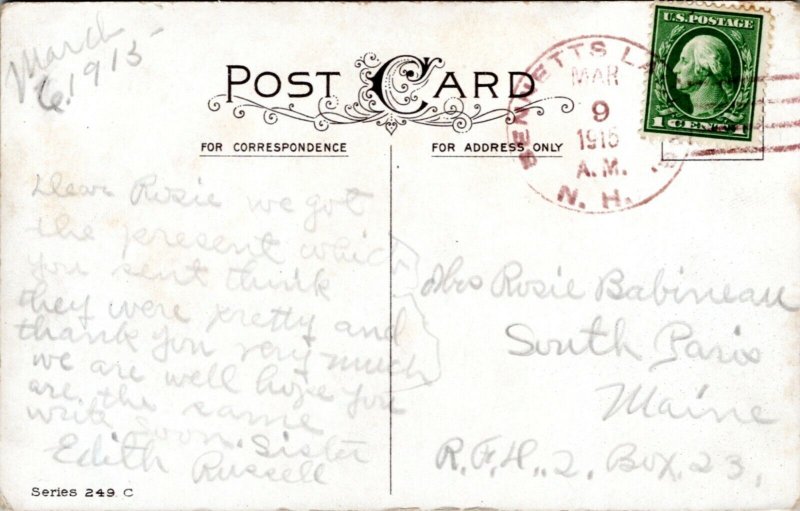 March
6, 1915
POST CARD
FOR CORRESPONDENCE
FOR ADDRESS ONLY
U.S. POSTAGE
1 CENT 1
MAR
9
1915
A.M.
N. H.
Dear Rosie we got
the present which
you sent think
they were pretty and
thank you very much
we are well hope you
are the same
write soon. Sister
Edith Russell
Mrs Rosie Babineau
South Paris
Maine
R.F.D., 2, Box. 23,
Series 249 C